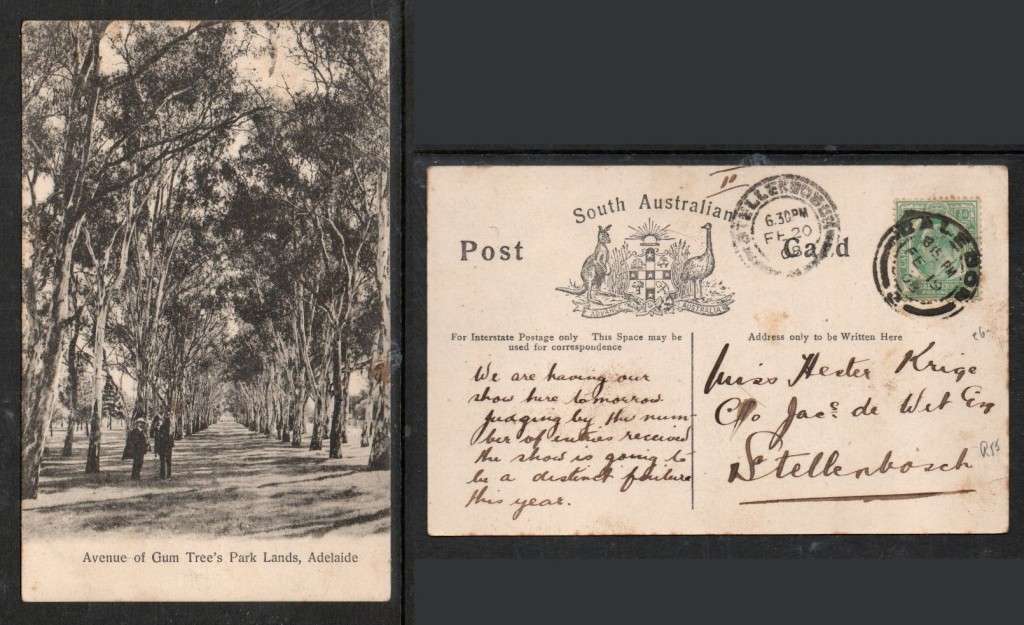 Avenue of Gum Tree's Park Lands, Adelaide
South Australian
Post Card
ADVANCE AUSTRALIA
STELLENBOSCH
6.30PM
FE 20
For Interstate Postage only This Space may be
used for correspondence
Address only to be Written Here
We are having our
show here tomorrow
judging by the num-
ber of entries received
the show is going to
be a distinct failure
this year.
Miss Hester Krige
C/o Jacs. de Wet Esq
Stellenbosch